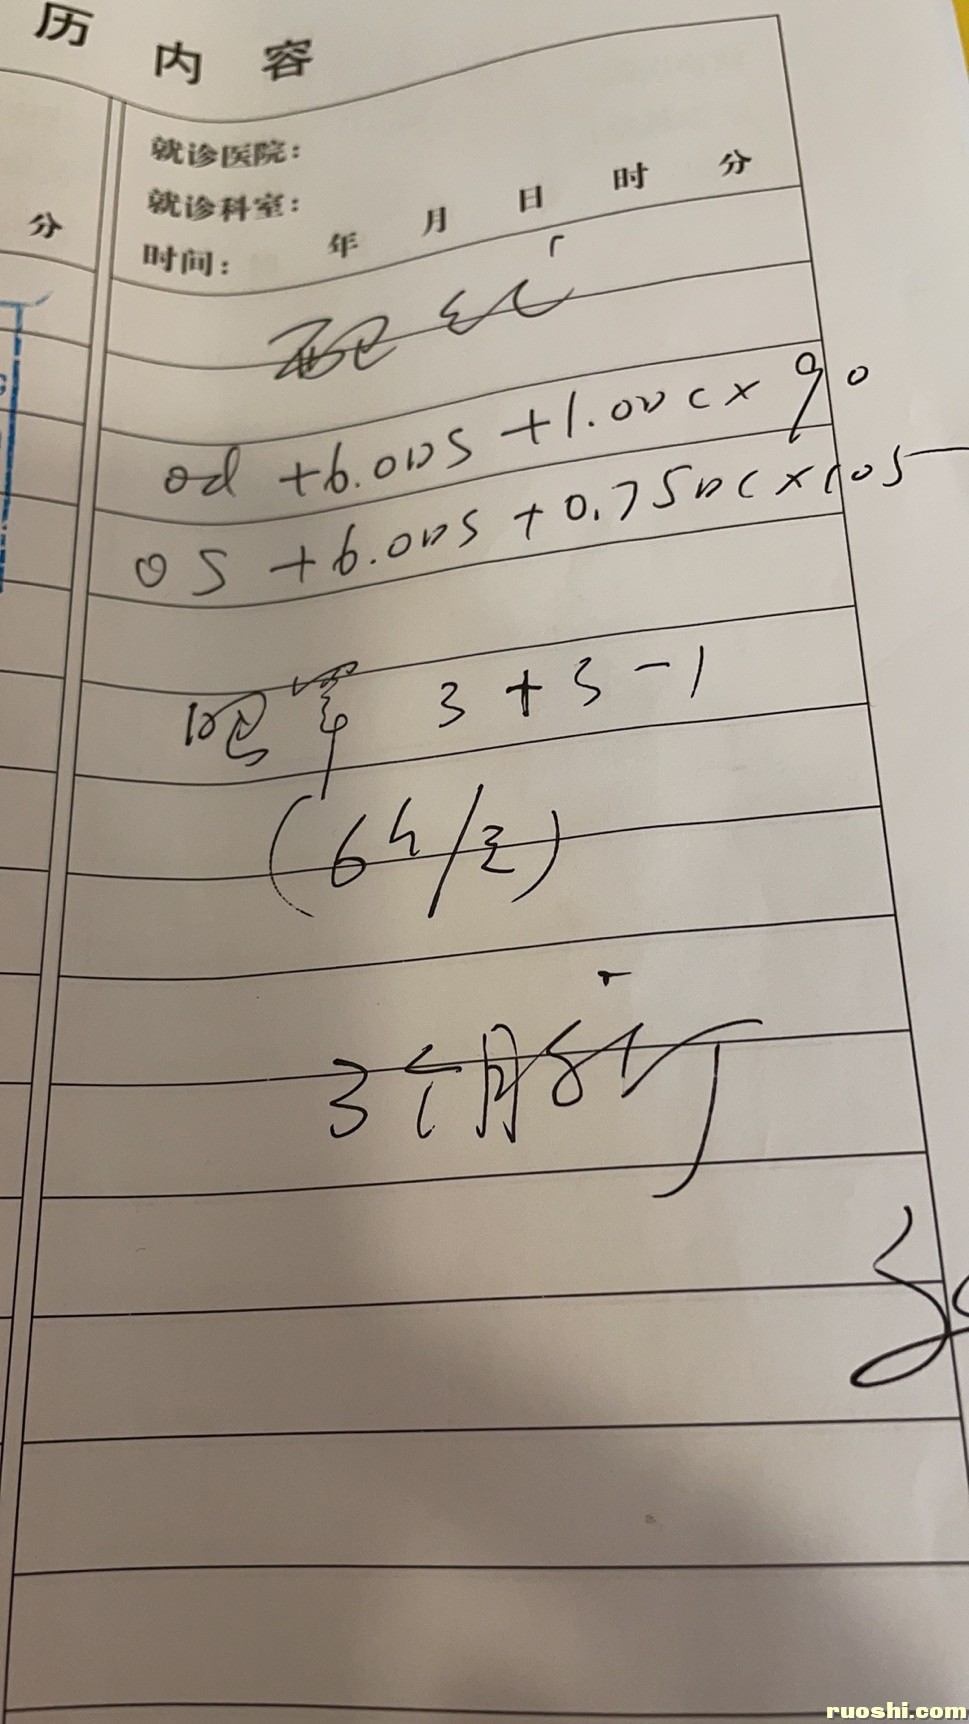 历 内 容
就诊医院:
就诊科室:
分
时间: 年 月 日 时 分
配镜
od +6.00DS +1.00DC×90
OS +6.00DS +0.75DC×105
眼罩 3+3-1
(6h/
3个月后
ruoshi.com